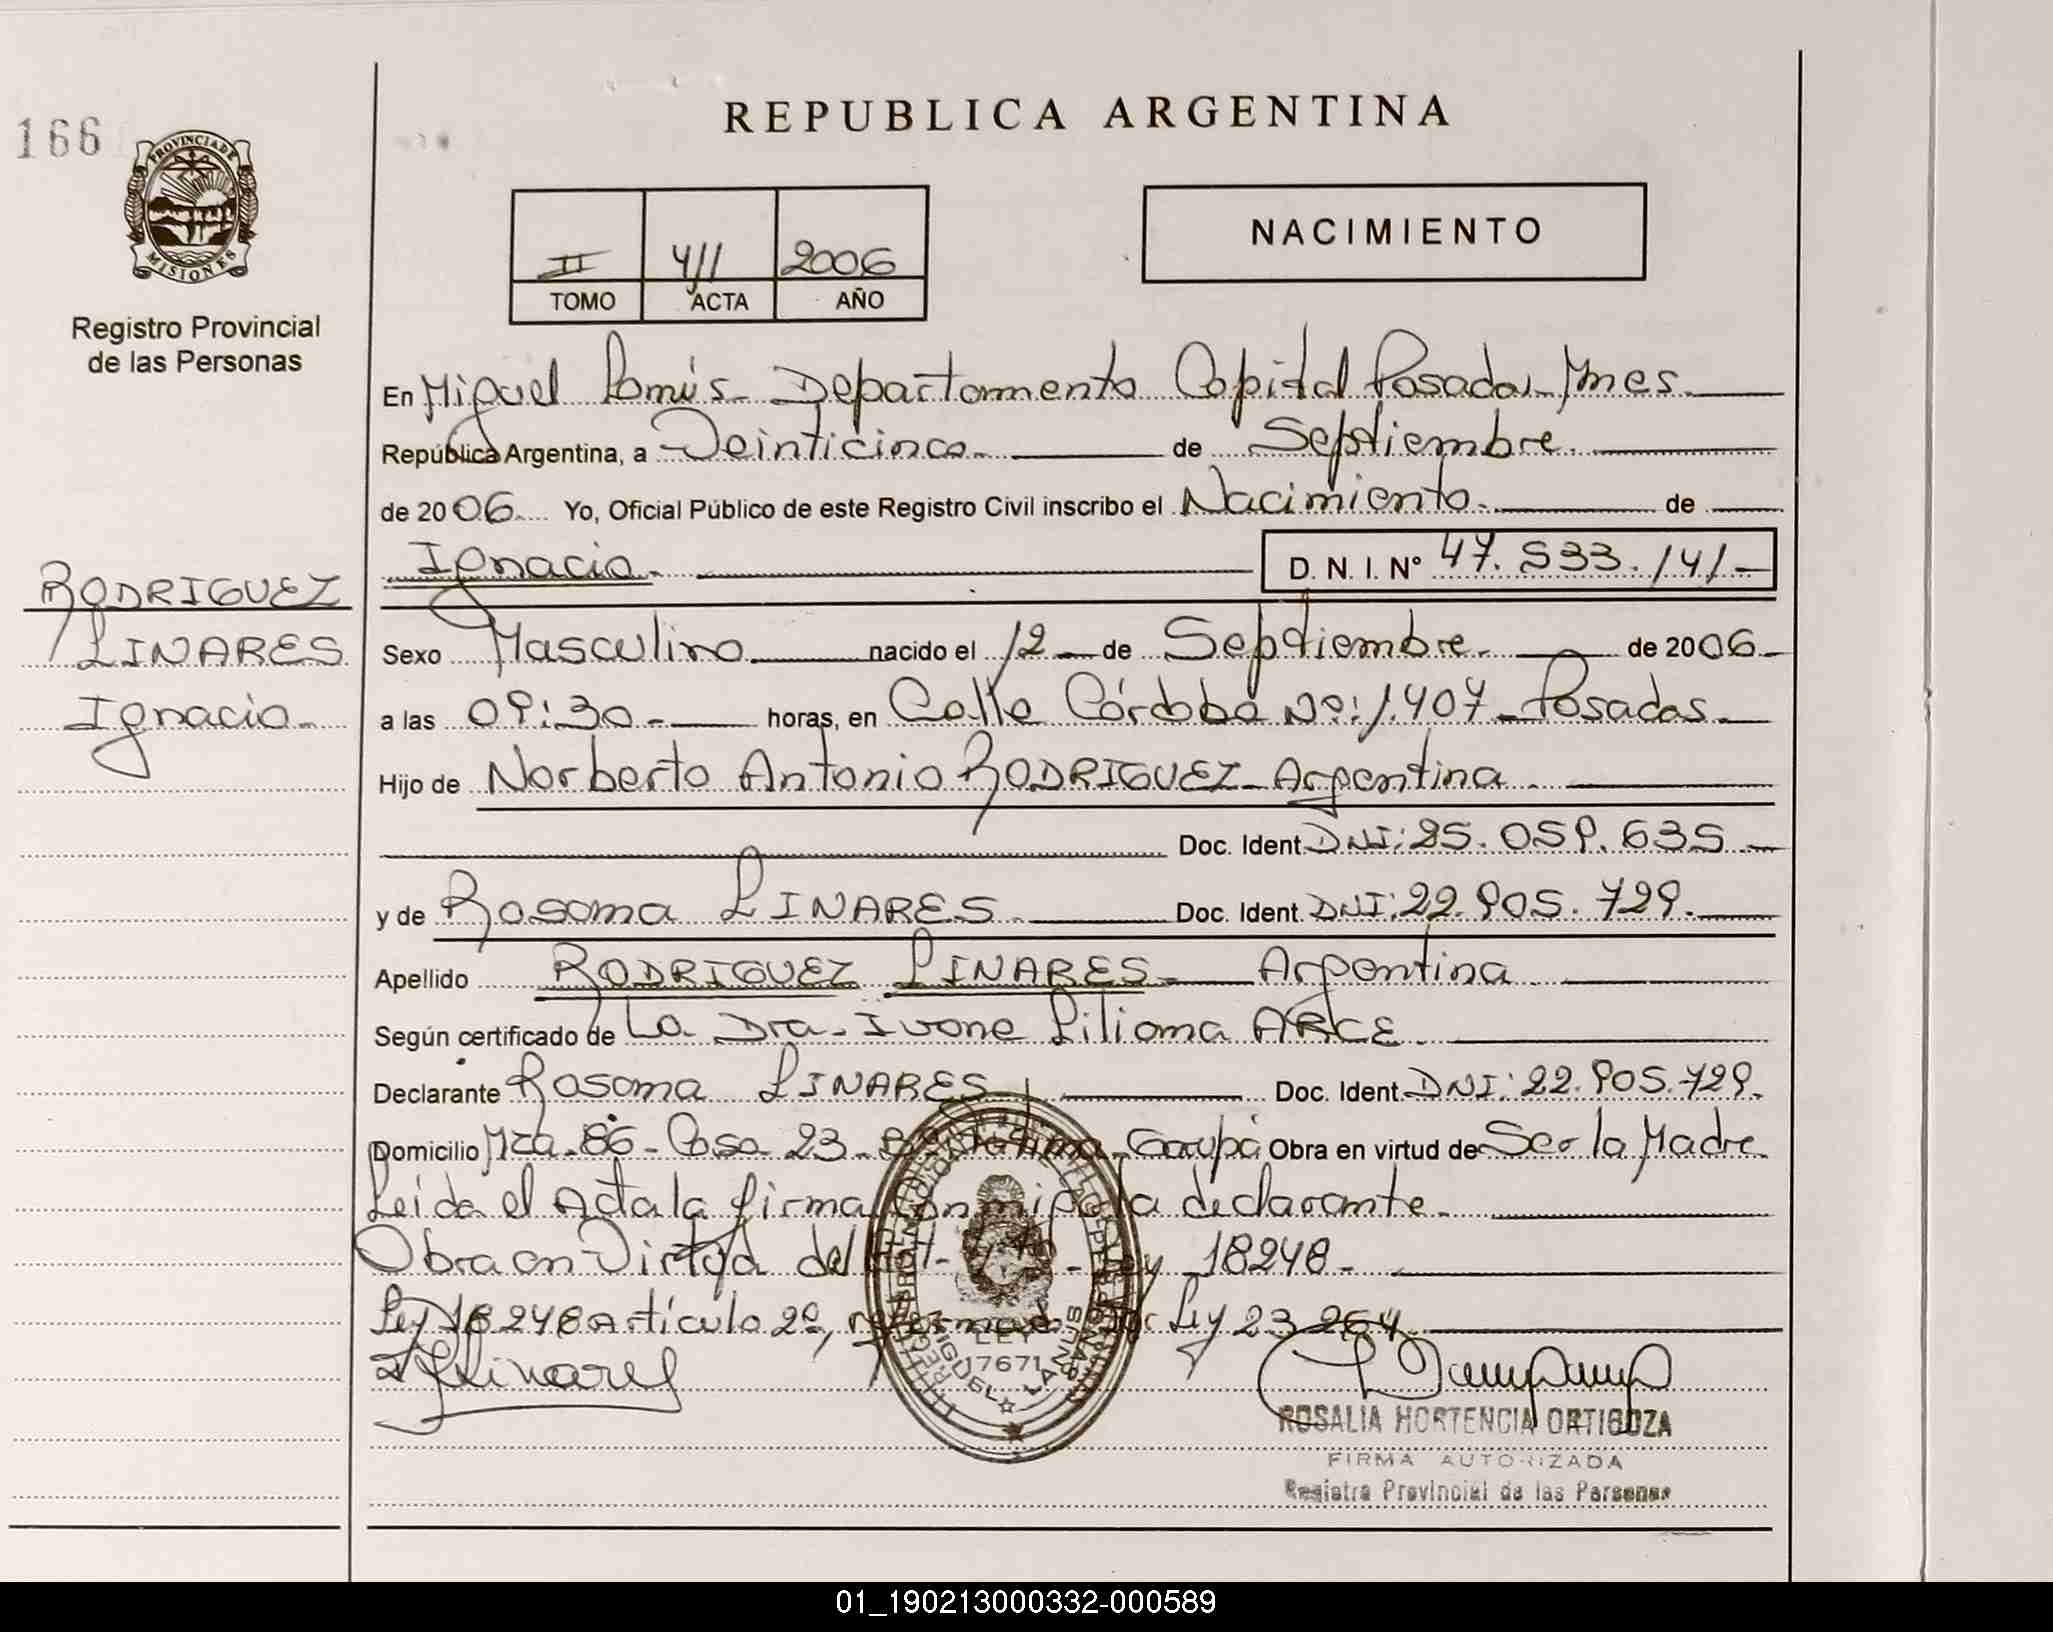 REPUBLICA ARGENTINA
166
PROVINCIA DE
MISIONES
Registro Provincial
de las Personas
NACIMIENTO
II 411 2006
TOMO ACTA AÑO
En Miguel Lanús - Departamento Capital Posadas - Mnes.
República Argentina, a Veinticinco. de Septiembre.
de 2006. Yo, Oficial Público de este Registro Civil inscribo el Nacimiento. de
Ignacio. D. N. I. N° 47.533.141
RODRIGUEZ
LINARES
Ignacio.
Sexo Masculino nacido el 12 de Septiembre. de 2006
a las 09:30 horas, en Calle Córdoba Nº: 1.407 - Posadas.
Hijo de Norberto Antonio RODRIGUEZ - Argentina
Doc. Ident. DNI: 25.059.635
y de Rosana LINARES Doc. Ident. DNI: 22.905.729.
Apellido RODRIGUEZ LINARES - Argentina
Según certificado de La Dra. Ivone Liliana ARCE
Declarante Rosana LINARES Doc. Ident. DNI: 22.905.729.
Domicilio Mza. 86 - Casa 23 - Garupá Obra en virtud de Ser la Madre
Leida el Acta la firma conmigo la declarante.
Obra en Virtud del Ley 18248.
Ley 18248 Artículo 2º, reformado por Ley 23.264
Linares
LEY
17671
MIGUEL LANUS
ROSALIA HORTENCIA ORTIGOZA
FIRMA AUTORIZADA
Registro Provincial de las Personas
01_190213000332-000589